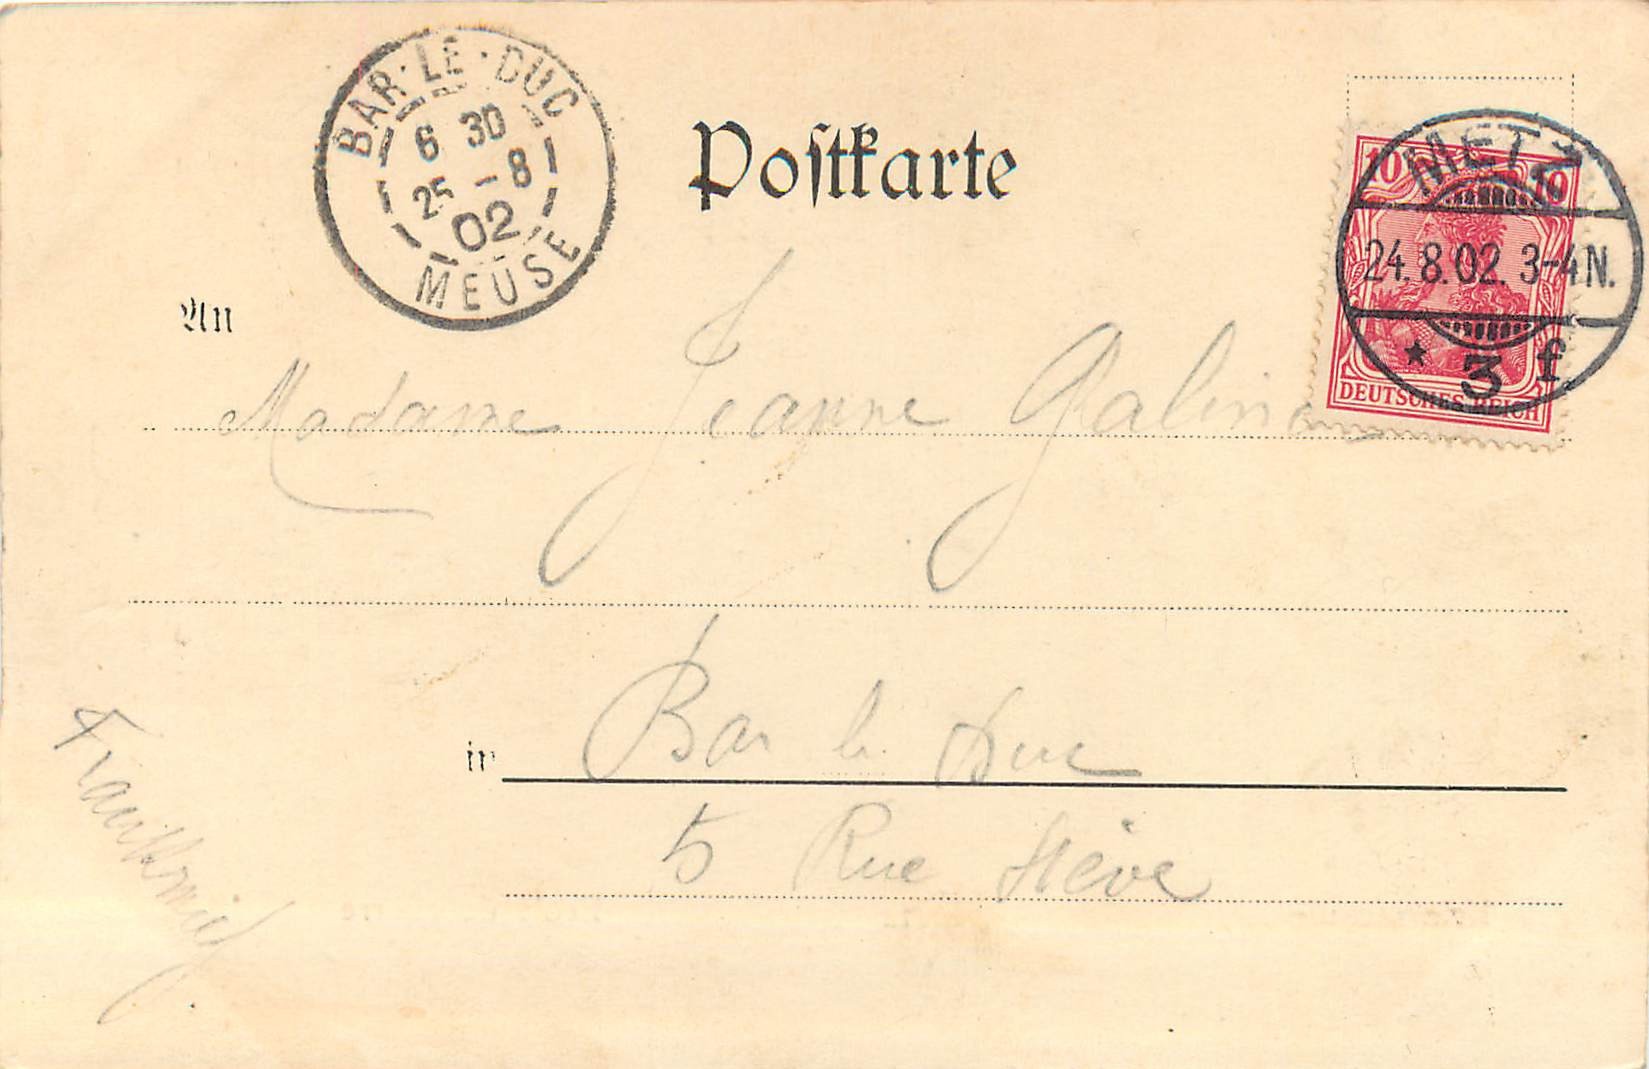 BAR·LE·DUC
6 30
25 -8
02
MEUSE
Postkarte
10 10
DEUTSCHES REICH
METZ
24.8.02. 3-4N.
* 3 f.
An
Madame Jeanne
in Bar le Duc
5 Rue